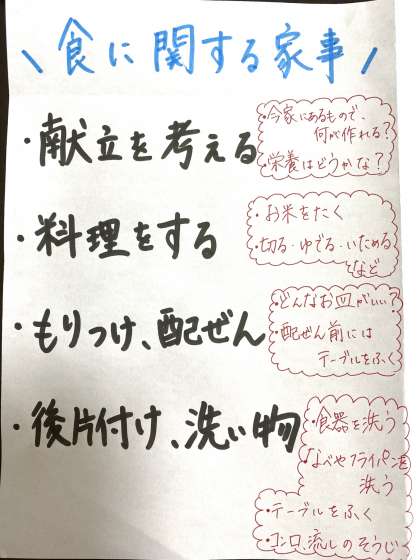 \ 食に関する家事 /
・献立を考える
・今家にあるもので、
何が作れる?
・栄養はどうかな?
・料理をする
・お米をたく
・切る・ゆでる・いためる
など
・もりつけ、配ぜん
・どんなお皿がいい?
・配ぜん前には
テーブルをふく
・後片付け、洗い物
・食器を洗う
・なべやフライパンを
洗う
・テーブルをふく
・コンロ、流しのそうじ